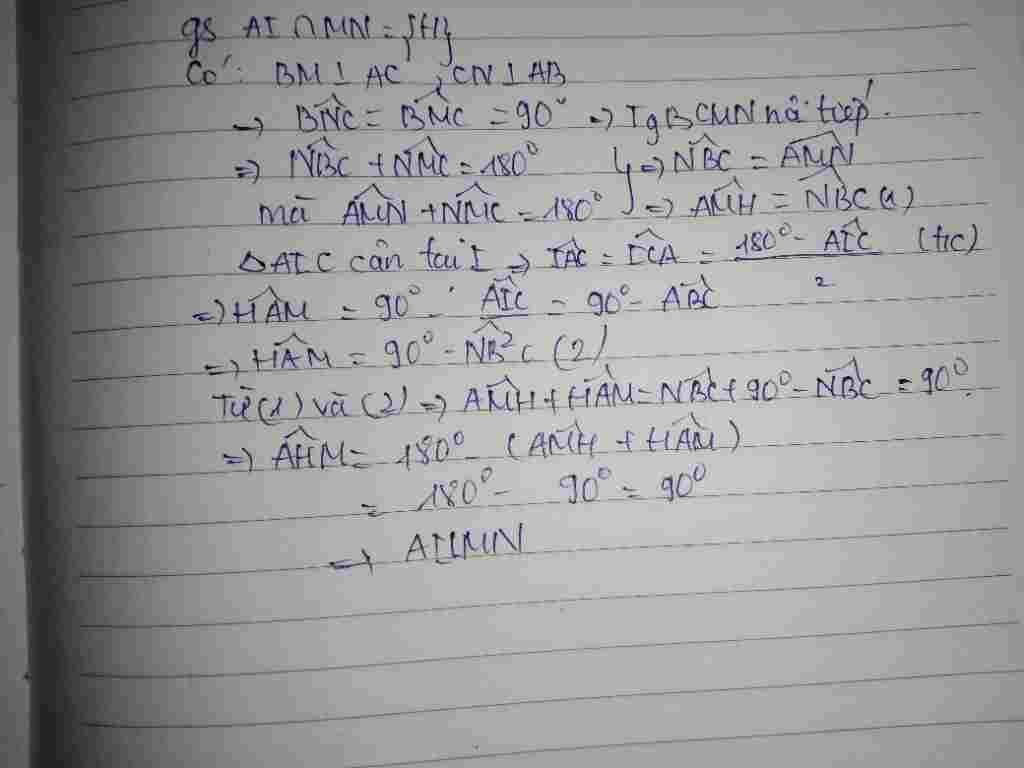 gs AI ∩ MN = {H}
Có: BM ⊥ AC, CN ⊥ AB
→ BNC = BMC = 90° → Tg BCMN nội tiếp.
⇒ NBC + NMC = 180° } ⇒ NBC = AMN
mà AMN + NMC = 180° } ⇒ AMH = NBC (1)
Δ AIC cân tại I ⇒ IAC = ICA = (180° - AIC)/2 (t/c)
⇒ HAM = 90° - AIC/2 = 90° - ABC
⇒ HAM = 90° - NBC (2)
Từ (1) và (2) ⇒ AMH + HAM = NBC + 90° - NBC = 90°.
⇒ AHM = 180° - (AMH + HAM)
= 180° - 90° = 90°
→ AI ⊥ MN